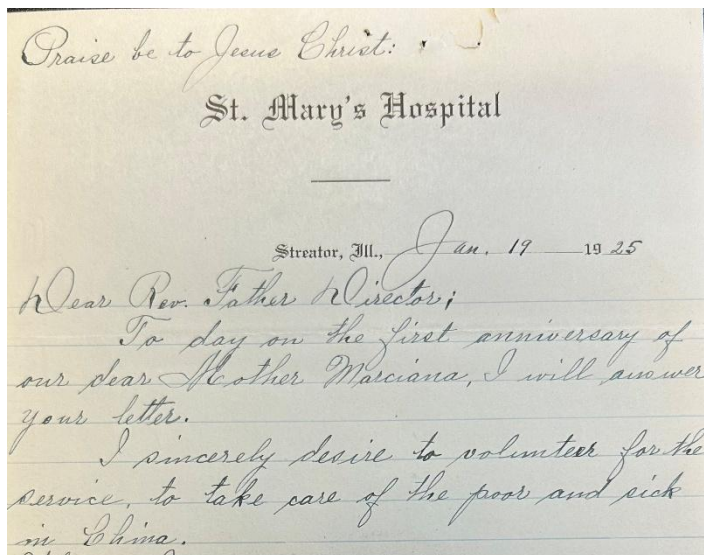 Praise be to Jesus Christ:
St. Mary's Hospital
Streator, Ill., Jan. 19 1925
Dear Rev. Father Director;
To day on the first anniversary of
our dear Mother Marciana, I will answer
your letter.
I sincerely desire to volunteer for the
service, to take care of the poor and sick
in China.